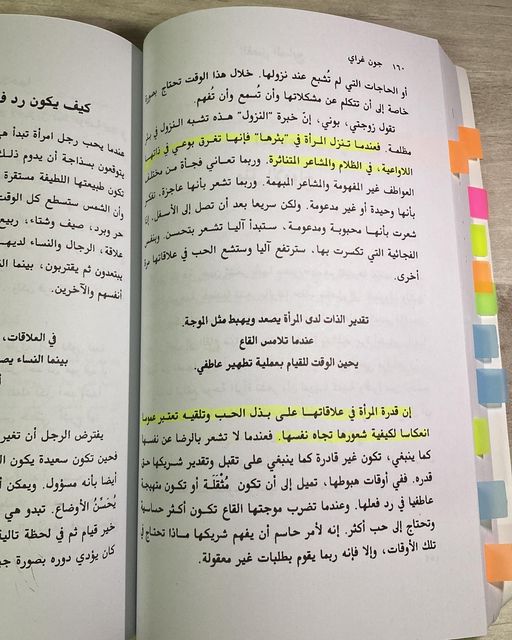 ١٦٠ جون غراي
أو الحاجات التي لم تُشبع عند نزولها. خلال هذا الوقت تحتاج بصورة
خاصة إلى أن تتكلم عن مشكلاتها وأن تُسمع وأن تُفهم.
تقول زوجتي، بوني، إنّ خبرة "النزول" هذه تشبه النزول في بئر
مظلمة. فعندما تنزل المرأة في "بئرها" فإنها تغرق بوعي في ذاتها
اللاواعية، في الظلام والمشاعر المتناثرة. وربما تعاني فجأة من مختلف
العواطف غير المفهومة والمشاعر المبهمة. وربما تشعر بأنها عاجزة،
بأنها وحيدة أو غير مدعومة. ولكن سريعا بعد أن تصل إلى الأسفل، إذا
شعرت بأنها محبوبة ومدعومة، ستبدأ آليا تشعر بتحسن. وبنفس
الفجائية التي تكسرت بها، سترتفع آليا وستشع الحب في علاقاتها مرة
أخرى.
تقدير الذات لدى المرأة يصعد ويهبط مثل الموجة.
عندما تلامس القاع
يحين الوقت للقيام بعملية تطهير عاطفي.
إن قدرة المرأة في علاقاتها على بذل الحب وتلقيه تعتبر عموما
انعكاسا لكيفية شعورها تجاه نفسها. فعندما لا تشعر بالرضا عن نفسها
كما ينبغي، تكون غير قادرة كما ينبغي على تقبل وتقدير شريكها حق
قدره. ففي أوقات هبوطها، تميل إلى أن تكون مُثْقَلَة أو تكون متهيجة
عاطفيا في رد فعلها. وعندما تضرب موجتها القاع تكون أكثر حساسية
وتحتاج إلى حب أكثر. إنه لأمر حاسم أن يفهم شريكها ماذا تحتاج في
تلك الأوقات، وإلا فإنه ربما يقوم بطلبات غير معقولة.
كيف يكون رد ف
عندما يحب رجل امرأة تبدأ هي
يتوقعون بسذاجة أن يدوم ذلك
تكون طبيعتها اللطيفة مستقرة
وأن الشمس ستسطع كل الوقت
حر وبرد، صيف وشتاء، ربيع
علاقة، الرجال والنساء لديهم
يبتعدون ثم يقتربون، بينما الن
أنفسهم والآخرين.
في العلاقات،
بينما النساء يص
يفترض الرجل أن تغير
فحين تكون سعيدة يكون ال
أيضا بأنه مسؤول. ويمكن أ
يُحسِّنُ الأوضاع. تبدو هي
خير قيام ثم في لحظة تالية
كان يؤدي دوره بصورة جي